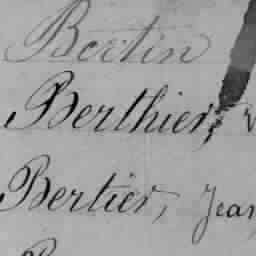 Bertin
Berthier,
Bertier, Jean